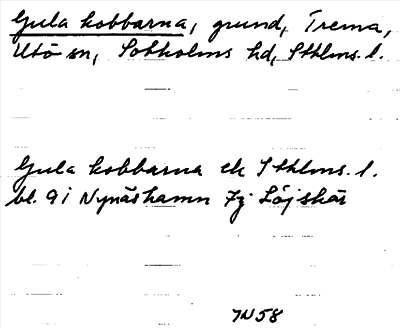 Gula kobbarna, grund, Trema,
Utö sn, Sotholms hd, Sthlms. l.
Gula kobbarna ek Sthlms. l.
bl. 9i Nynäshamn 7j Löjskär
IN 58